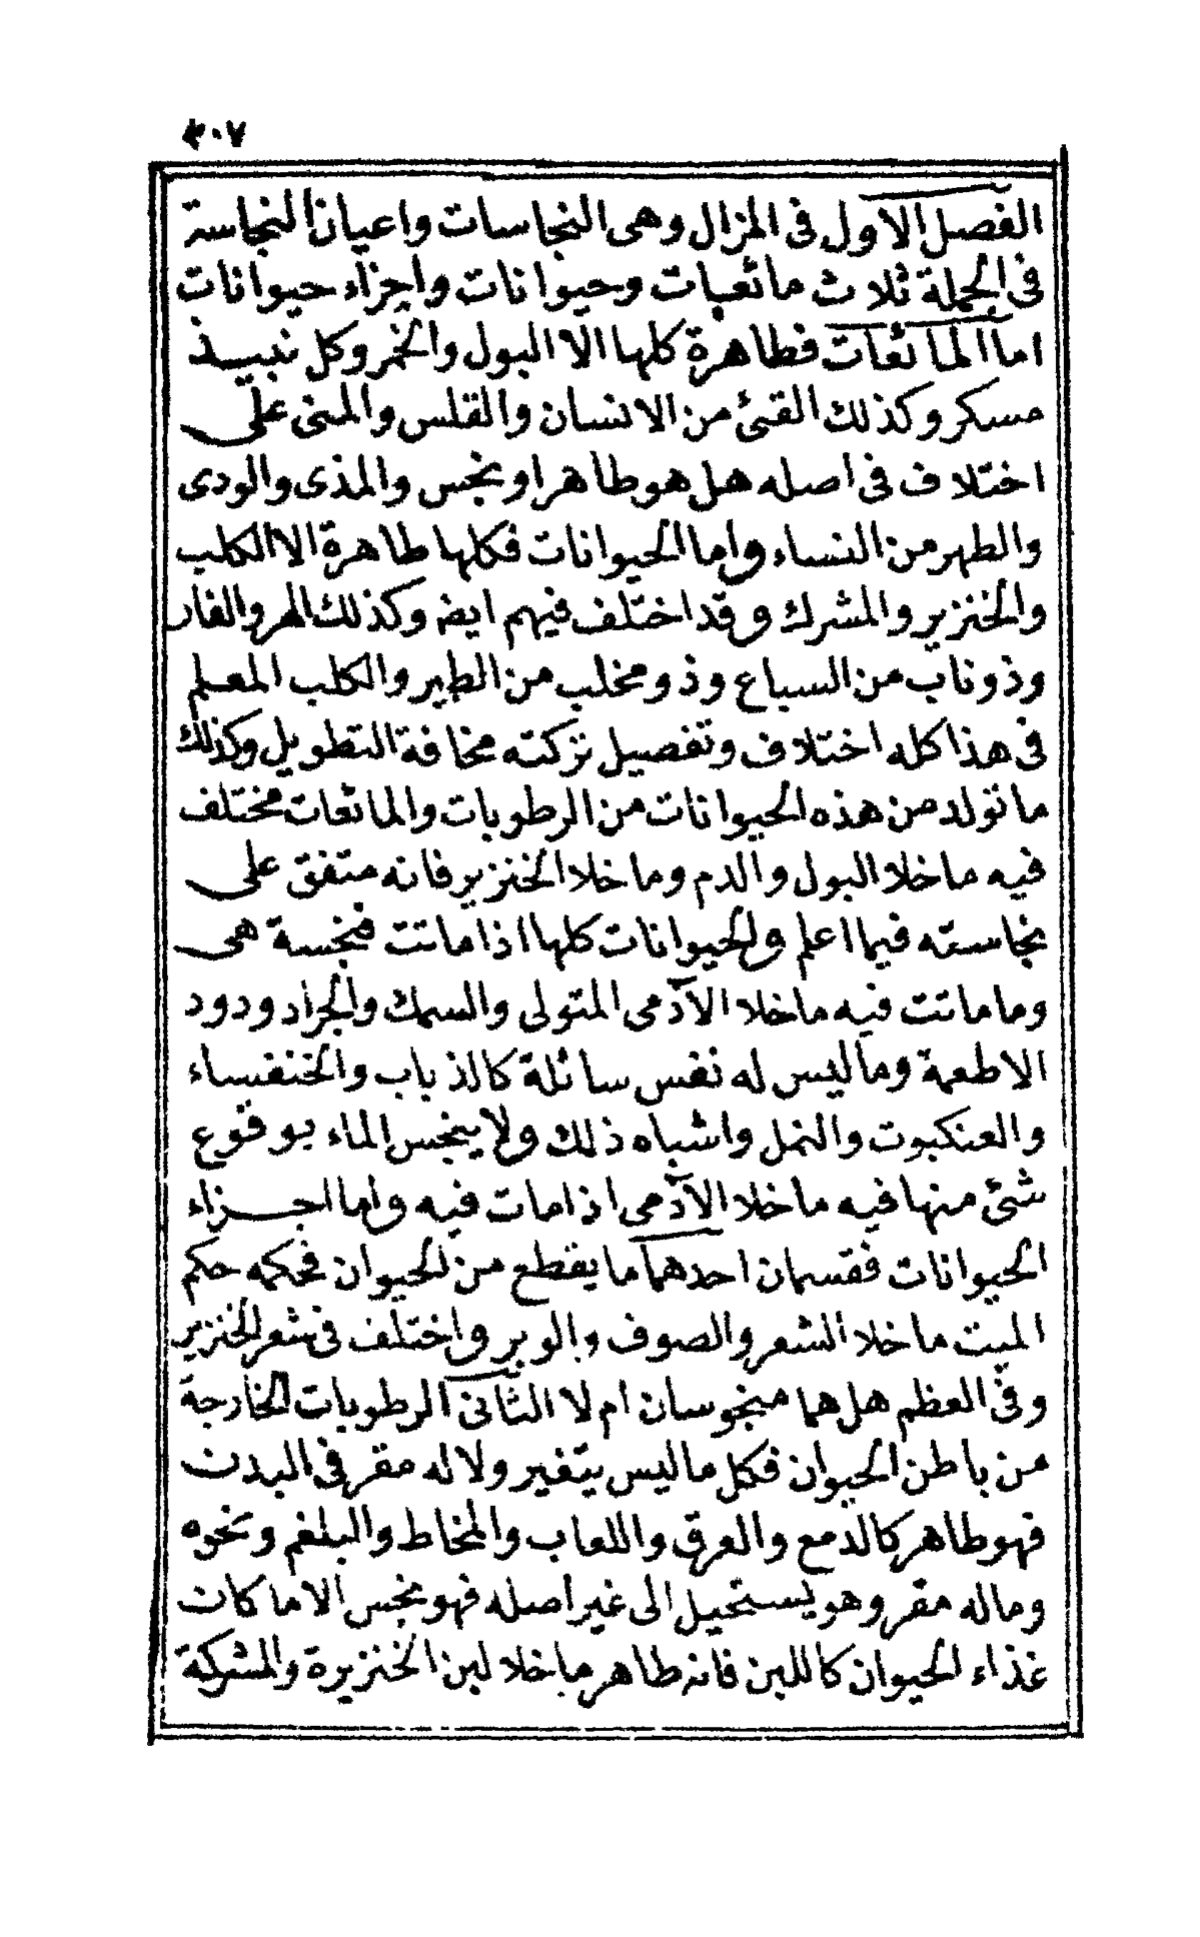 ٣٠٧
الفصل الاول فى المزال وهى النجاسات واعيان النجاسة
فى الجملة ثلاث مائعيات وحيوانات واجزاء حيوانات
اما المائعات فطاهرة كلها الا البول والخمر وكل نبيذ
مسكر وكذلك القئ من الانسان والقلس والمنى على
اختلاف فى اصله هل هو طاهر او نجس والمذى والودى
والطهر من النساء واما الحيوانات فكلها طاهرة الا الكلب
والخنزير والمشرك وقد اختلف فيهم ايضه وكذلك الهر والفار
وذوناب من السباع وذو ومخلب من الطير والكلب المعلم
فى هذا كله اختلاف وتفصيل تركته مخافة التطويل وكذلك
ما تولد من هذه الحيوانات من الرطوبات والمائعات مختلف
فيه ما خلا البول والدم وما خلا الخنزير فانه متفق على
نجاسته فيما اعلم والحيوانات كلها اذا ماتت فنجسة هى
وما ماتت فيه ما خلا الآدمى المتولى والسمك والجراد ودود
الاطعمة وما ليس له نفس سائلة كالذباب والخنفساء
والعنكبوت والنمل واشباه ذلك ولا ينجس الماء بوقوع
شئ منها فيه ما خلا الآدمى اذا مات فيه واما اجزاء
الحيوانات فقسمان احدهما ما يقطع من الحيوان فحكمه حكم
الميت ما خلا الشعر والصوف والوبر واختلف فى شعر الخنزير
وفى العظم هل هما منجوسان ام لا الثانى الرطوبات الخارجة
من باطن الحيوان فكل ما ليس يتغير ولا له مقر فى البدن
فهو طاهر كالدمع والعرق واللعاب والمخاط والبلغم ونحوه
وماله مقر وهو يستحيل الى غير اصله فهو نجس الا ما كان
غذاء الحيوان كاللبن فانه طاهر ما خلا لبن الخنزيرة والمشركة